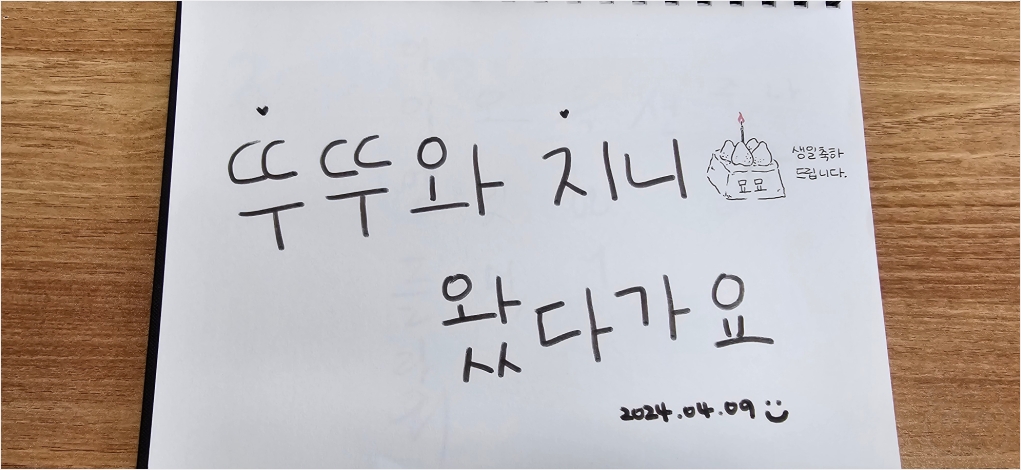 뚜뚜와 지니
묘묘
생일축하
드립니다.
왔다가요
2024.04.09